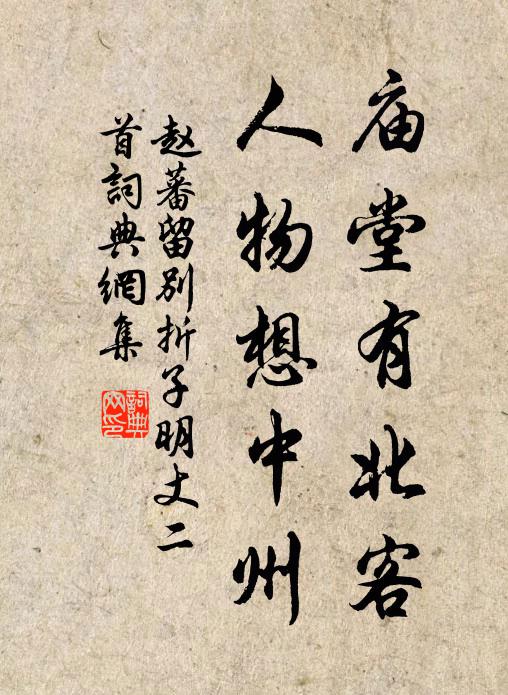 庙堂有北客
人物想中州
赵蕃留别折子明丈二
首詞典網集
詞典
网印